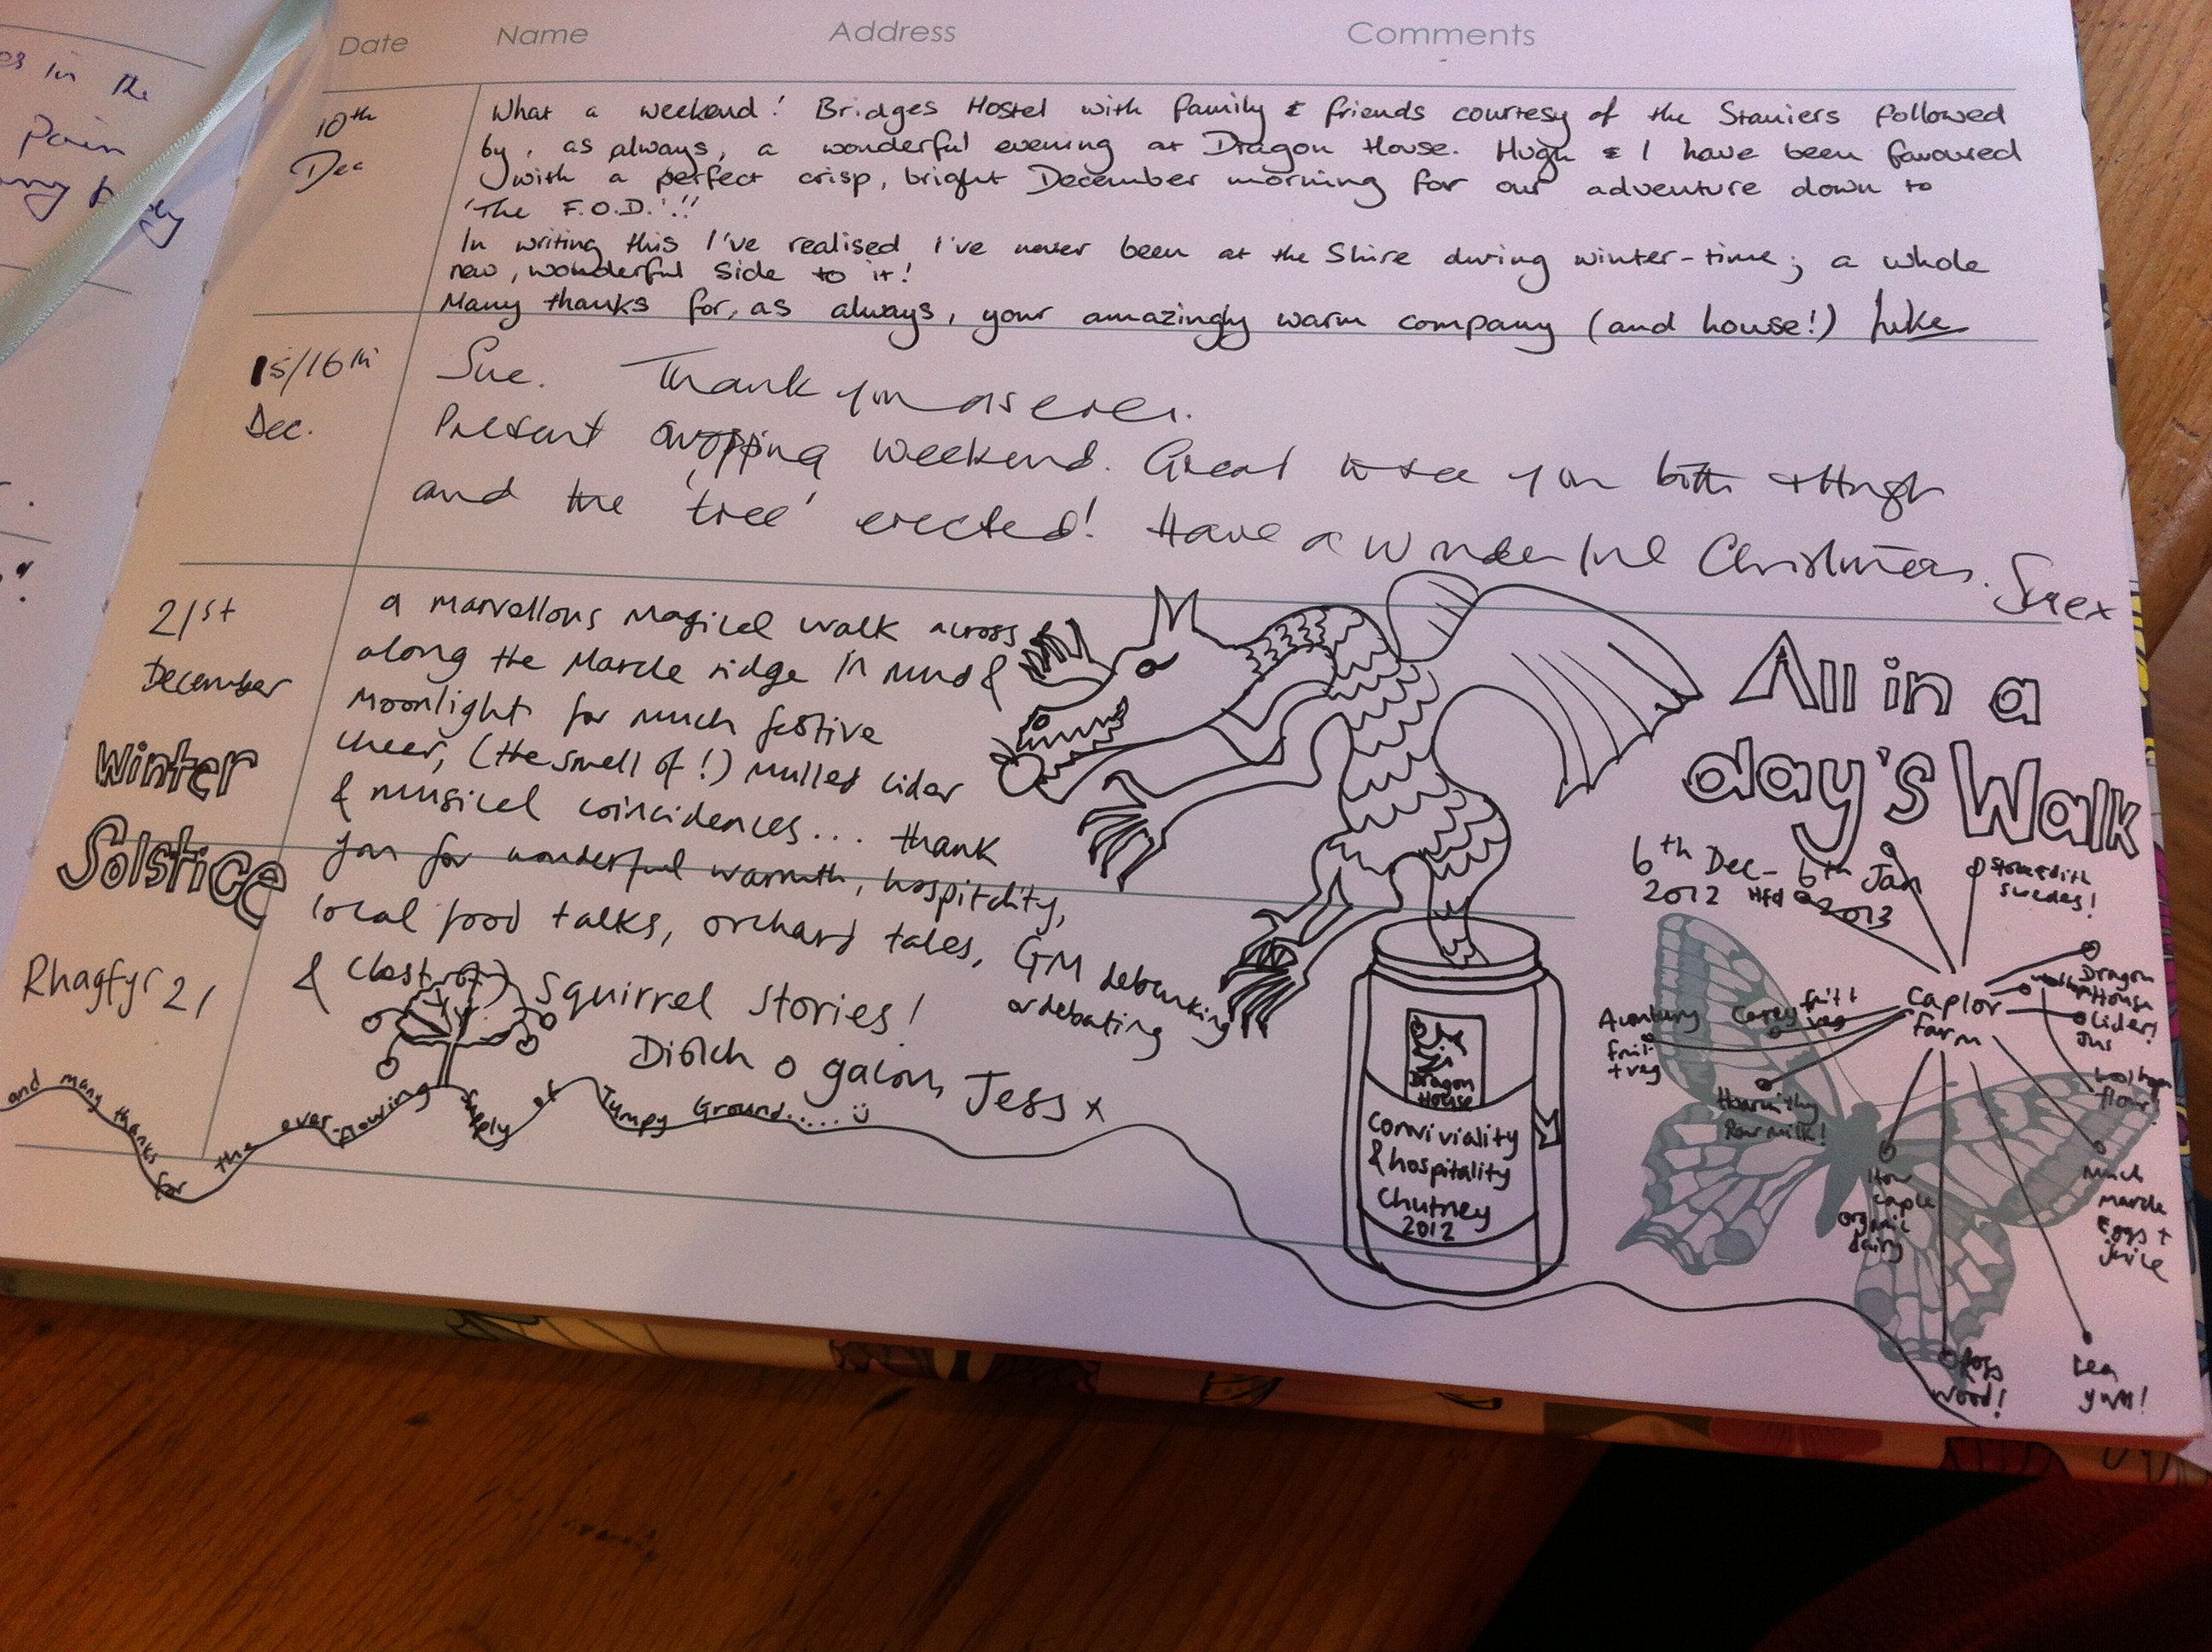 es in the
pain
Date Name Address Comments
10th
Dec
What a weekend! Bridges Hostel with family & friends courtesy of the Staniers followed
by, as always, a wonderful evening at Dragon House. Hugh & I have been favoured
with a perfect crisp, bright December morning for our adventure down to
'The F.O.D.'!!
In writing this I've realised I've never been at the Shire during winter-time; a whole
new, wonderful side to it!
Many thanks for, as always, your amazingly warm company (and house!) Luke
15/16th
Dec.
Sue. Thank you as ever.
Present dropping weekend. Great to see you both & Hugh
and the 'tree' erected! Have a wonderful Christmas. Sue x
21st
December
Winter
Solstice
Rhagfyr 21
a marvellous magical walk across
along the Marcle ridge in mud &
moonlight for much festive
cheer, (the smell of!) mulled cider
& musical coincidences... thank
you for wonderful warmth, hospitality,
local food talks, orchard tales, GM debunking
or debating
& (best of) squirrel stories!
Diolch o galon, Jess x
and many thanks for the ever-flowing supply of Jumpy Ground.....
Dragon
House
Conviviality
& hospitality
Chutney
2012
All in a
day's Walk
6th Dec - 6th Jan
2012 2013
Hfd
swedes!
Dragon
House
cider!
Caplor
Farm
Carey fruit +
veg
fruit
+ veg
Raw milk!
flour
How
Caple
organic
dairy
Much
Marcle
Eggs +
juice
Wood!